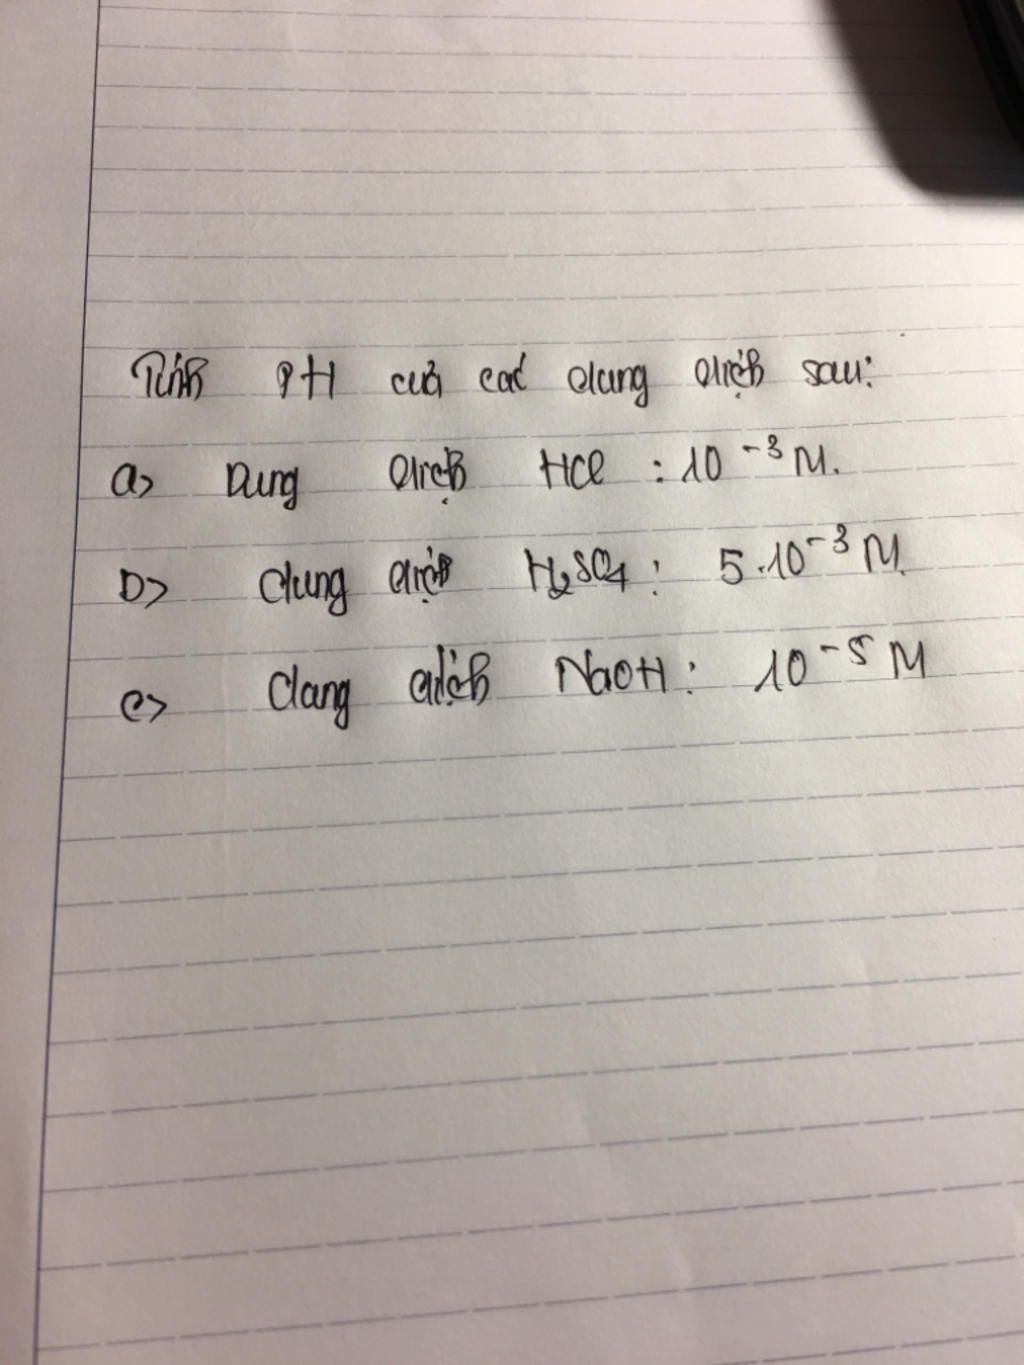 Tính pH của các dung dịch sau:
a> Dung dịch HCl : 10⁻³ M.
b> dung dịch H₂SO₄ : 5.10⁻³ M.
c> dung dịch NaOH : 10⁻⁵ M